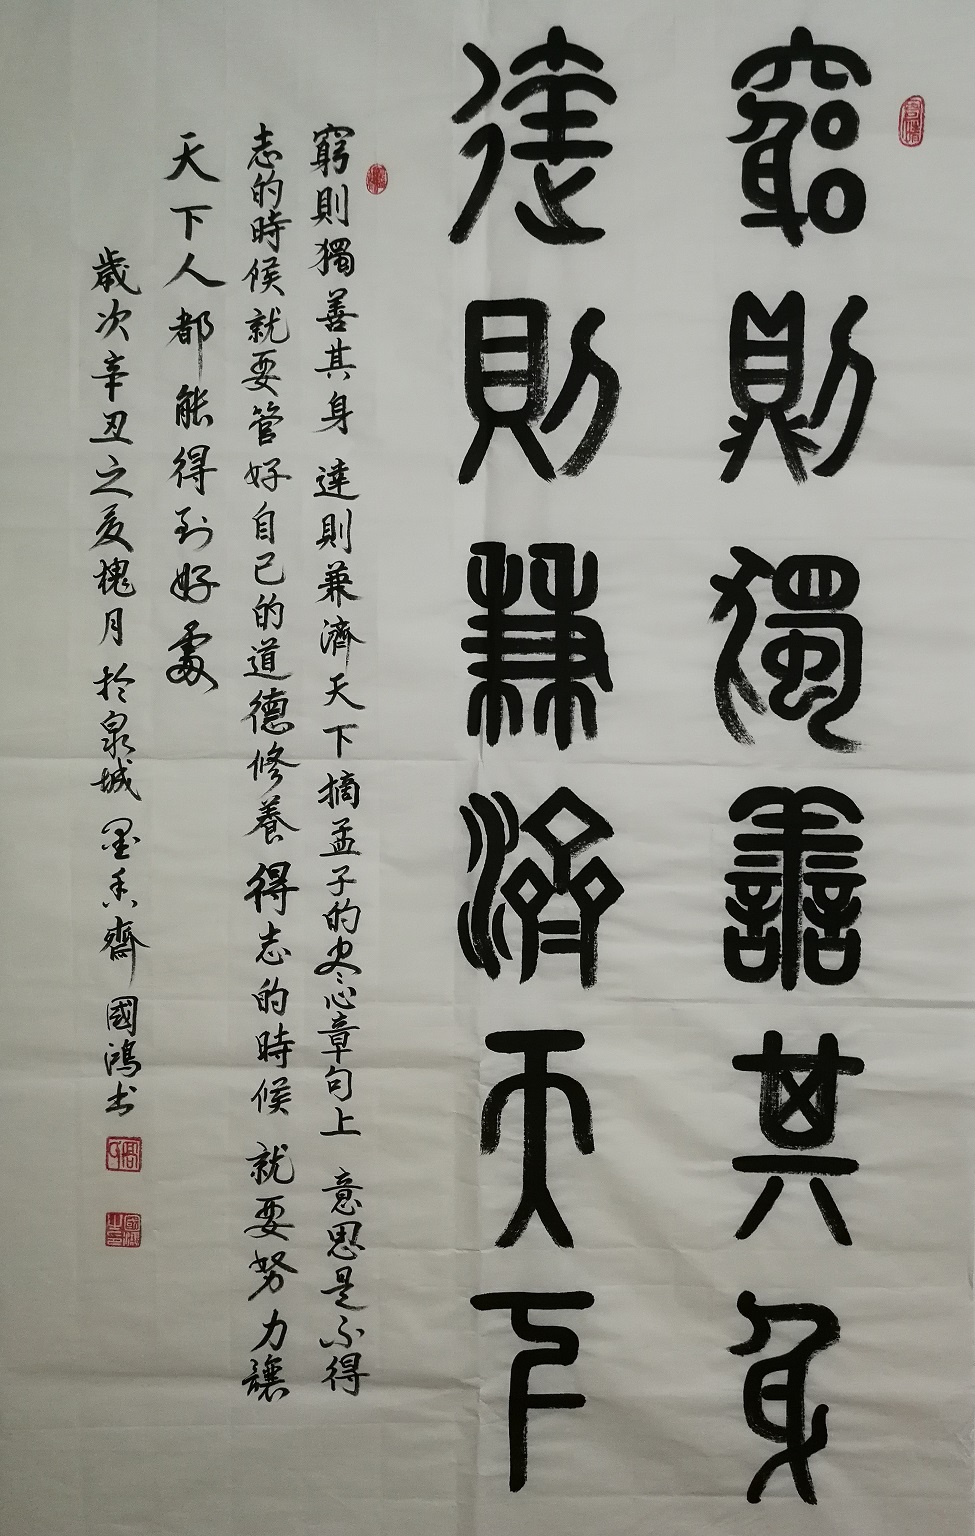 窮則獨善其身
達則兼濟天下
窮則獨善其身 達則兼濟天下 摘孟子的尽心章句上 意思是不得
志的時候就要管好自己的道德修養 得志的時候 就要努力讓
天下人都能得到好處
歲次辛丑之夏槐月於泉城 墨香齋 國鴻书